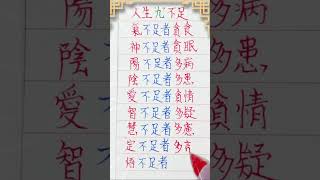 人生"九"不足
氣不足者貪食
神不足者貪眠
陽不足者多病
陰不足者多患
愛不足者貪情
智不足者多疑
慧不足者多
定不足者多言
悟不足者
陰 多患
愛 貪情
智 多疑